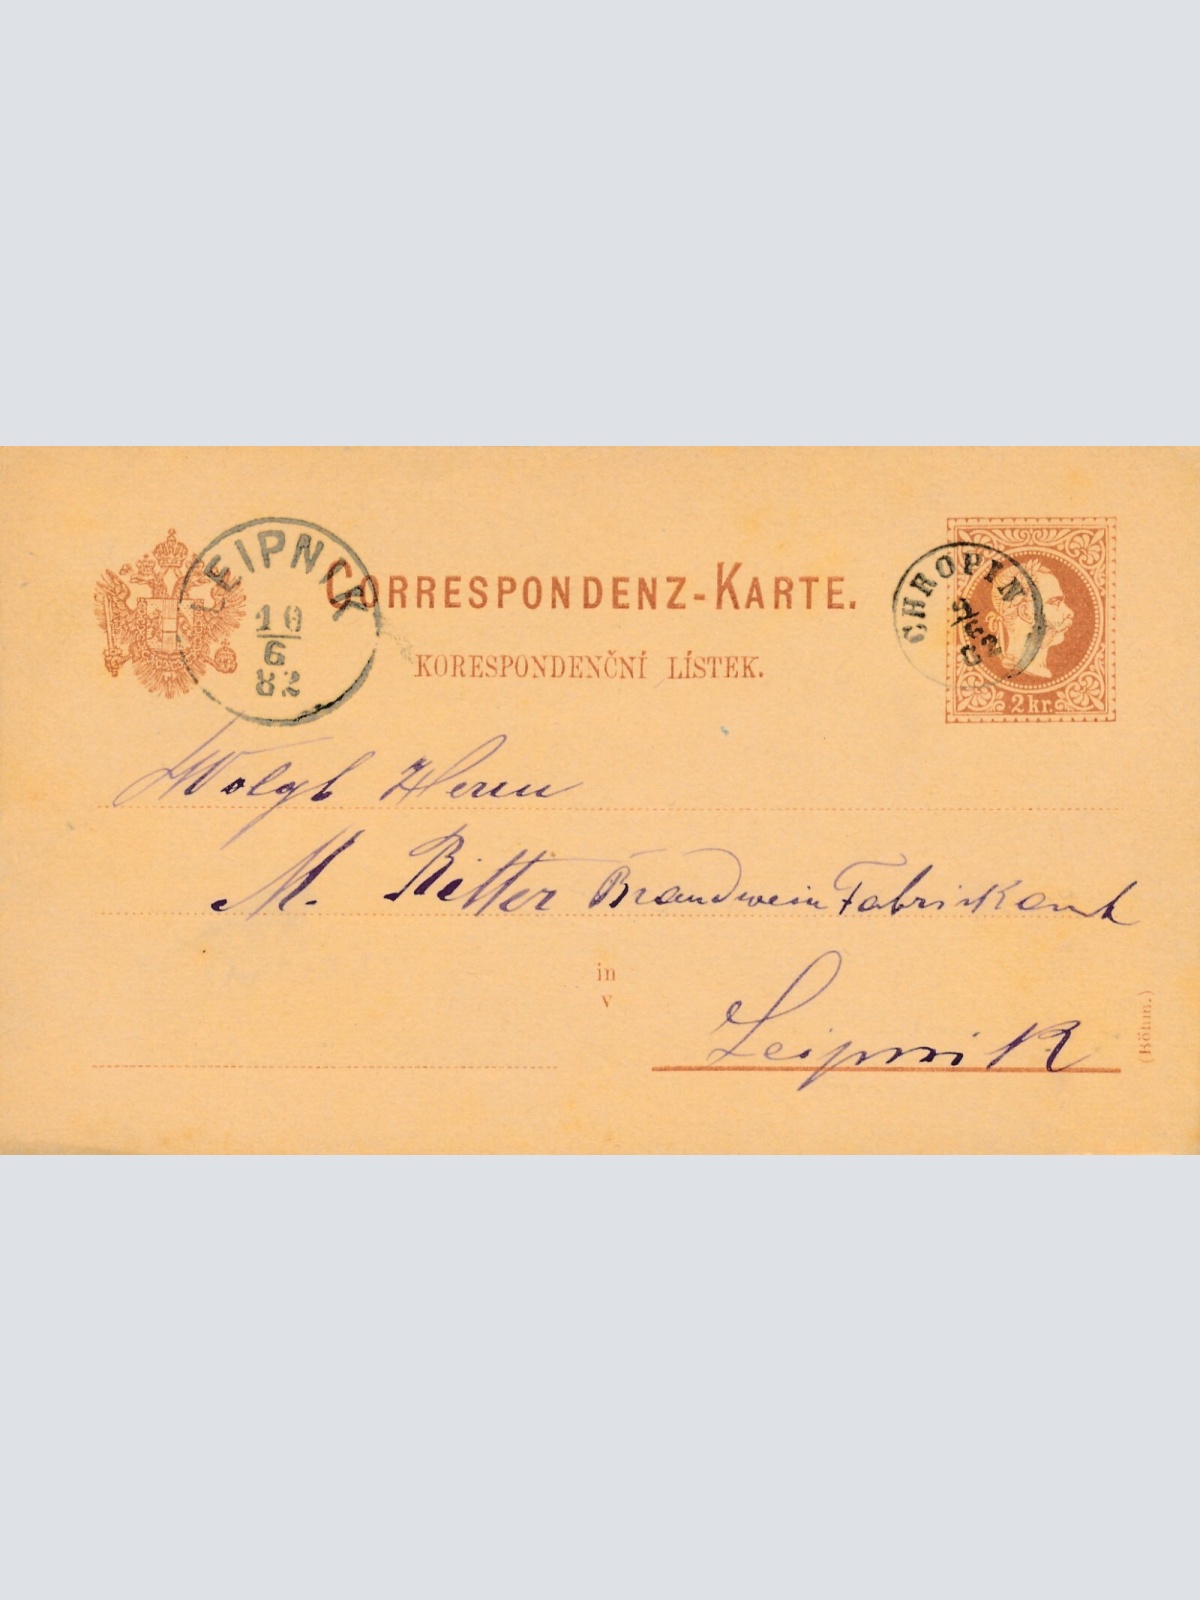 CORRESPONDENZ-KARTE.
KORESPONDENČNÍ LÍSTEK.
LEIPNIK
10
6
82
CHROPIN
2 kr.
Wolgb Herrn
M. Ritter Brandwein Fabrikant
in
v
Leipnik
(Böhm.)